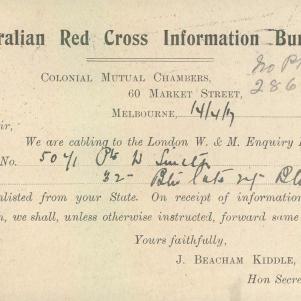 ralian Red Cross Information Bu
COLONIAL MUTUAL CHAMBERS,
60 MARKET STREET,
286
MELBOURNE, 14/4/17
ir,
We are cabling to the London W. & M. Enquiry
No. 5071 Pte W
32
nlisted from your State. On receipt of information
n, we shall, unless otherwise instructed, forward same
Yours faithfully,
J. BEACHAM KIDDLE,
Hon Secre